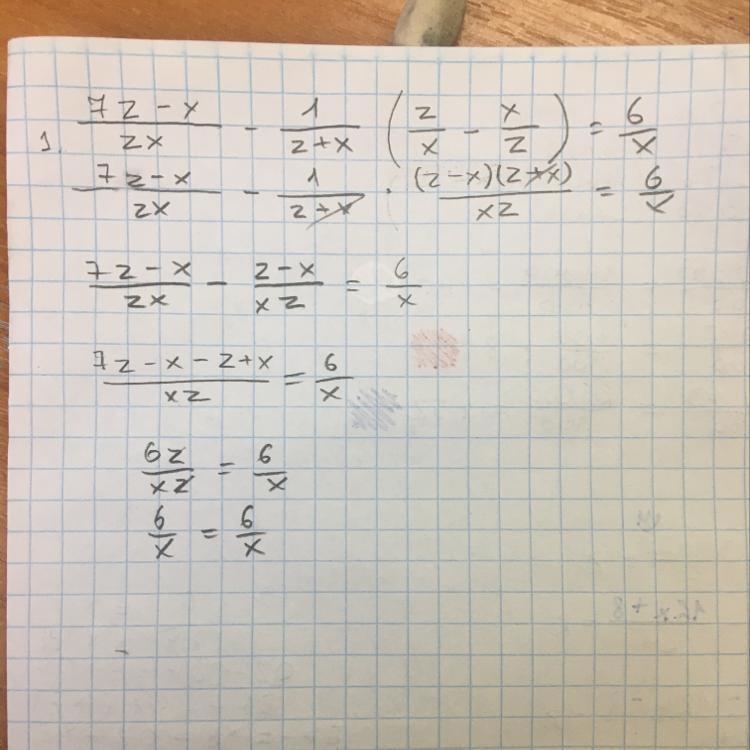 1. (7z - x)/(zx) - 1/(z+x) (z/x - x/z) = 6/x
(7z - x)/(zx) - 1/(z+x) · ((z-x)(z+x))/(xz) = 6/x
(7z - x)/(zx) - (z-x)/(xz) = 6/x
(7z - x - z + x)/(xz) = 6/x
6z/(xz) = 6/x
6/x = 6/x